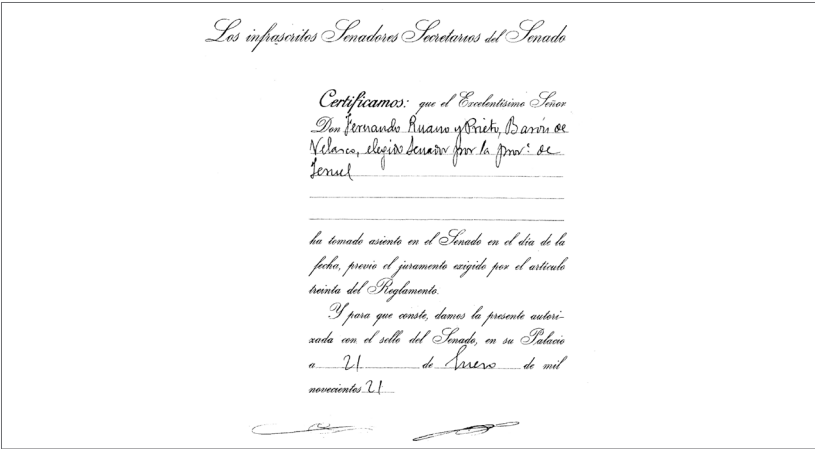 Los infrascritos Senadores Secretarios del Senado
Certificamos: que el Excelentísimo Señor
Don Fernando Ruano y Prieto, Barón de
Velasco, elegido Senador por la prov.ª de
Teruel
ha tomado asiento en el Senado en el día de la
fecha, previo el juramento exigido por el artículo
treinta del Reglamento.
Y para que conste, damos la presente autori-
zada con el sello del Senado, en su Palacio
a 21 de Enero de mil
novecientos 21